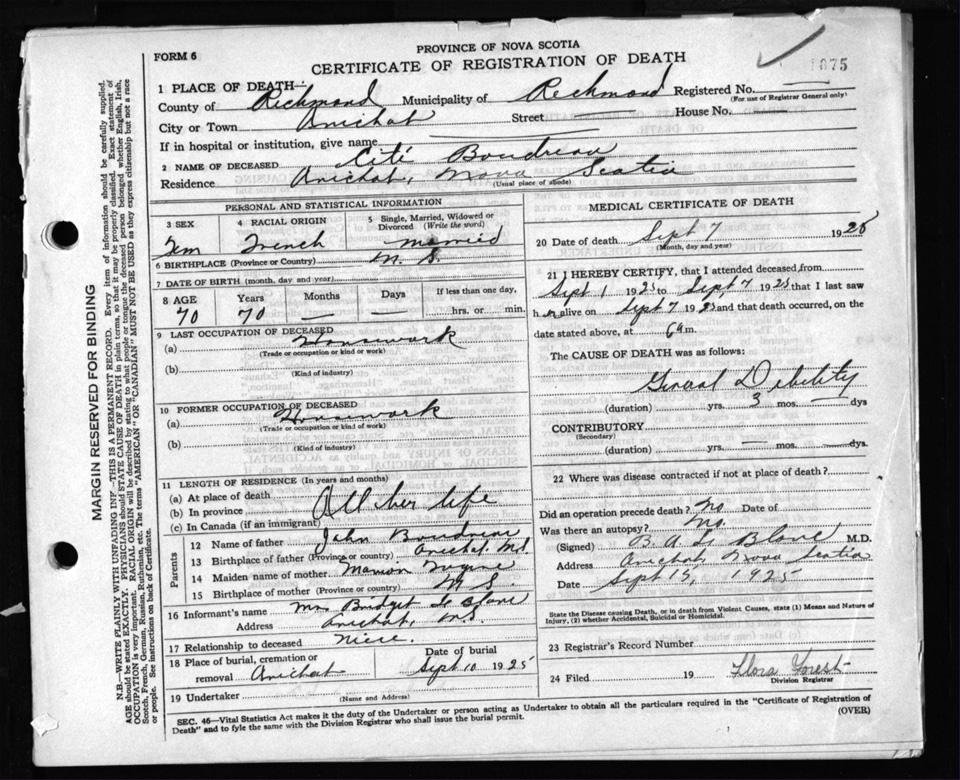 FORM 6
PROVINCE OF NOVA SCOTIA
CERTIFICATE OF REGISTRATION OF DEATH
1 PLACE OF DEATH—
County of Richmond Municipality of Richmond Registered No.
(For use of Registrar General only)
City or Town Arichat Street House No.
If in hospital or institution, give name
2 NAME OF DECEASED Cité Boudreau
Residence Arichat, Nova Scotia
(Usual place of abode)
PERSONAL AND STATISTICAL INFORMATION
3 SEX
Fem
4 RACIAL ORIGIN
French
5 Single, Married, Widowed or Divorced (Write the word)
Married
6 BIRTHPLACE (Province or Country) N. S.
7 DATE OF BIRTH (month, day and year)
8 AGE Years Months Days If less than one day,
70 70 — — hrs. or min.
9 LAST OCCUPATION OF DECEASED
(a) Housework
(Trade or occupation or kind or work)
(b)
(Kind of industry)
10 FORMER OCCUPATION OF DECEASED
(a) Housework
(Trade or occupation or kind or work)
(b)
(Kind of industry)
11 LENGTH OF RESIDENCE (In years and months)
(a) At place of death
(b) In province All her life
(c) In Canada (if an immigrant)
Parents
12 Name of father John Boudreau
13 Birthplace of father (Province or country) Arichat, N.S.
14 Maiden name of mother
15 Birthplace of mother (Province or country) N S.
16 Informant's name Mrs Bridget Le Blanc
Address Arichat, N.S.
17 Relationship to deceased Niece.
18 Place of burial, cremation or removal Arichat
Date of burial
Sept 10 1925
19 Undertaker
(Name and Address)
MEDICAL CERTIFICATE OF DEATH
20 Date of death Sept 7 1925
(Month, day and year)
21 I HEREBY CERTIFY, that I attended deceased from
Sept 1 1925 to Sept, 7 1925 that I last saw
h er alive on Sept 7 1925 and that death occurred, on the
date stated above, at 6 a m.
The CAUSE OF DEATH was as follows:
General Debility
(duration) yrs. 3 mos. — dys
CONTRIBUTORY
(Secondary)
(duration) yrs. — mos. — dys.
22 Where was disease contracted if not at place of death?
Did an operation precede death? No Date of
Was there an autopsy? No.
(Signed) B. A. Le Blanc M.D.
Address Arichat, Nova Scotia
Date Sept 15, 1925
State the Disease causing Death, or in death from Violent Causes, state (1) Means and Nature of
Injury, (2) whether Accidental, Suicidal or Homicidal.
23 Registrar's Record Number
24 Filed 19 Flora Forest
Division Registrar
SEC. 46—Vital Statistics Act makes it the duty of the Undertaker or person acting as Undertaker to obtain all the particulars required in the "Certificate of Registration of
Death" and to fyle the same with the Division Registrar who shall issue the burial permit.
(OVER)
MARGIN RESERVED FOR BINDING
N.B.—WRITE PLAINLY WITH UNFADING INK—THIS IS A PERMANENT RECORD. Every item of information should be carefully supplied.
AGE should be stated EXACTLY. PHYSICIANS should STATE CAUSE OF DEATH in plain terms, so that it may be properly classified. Exact statement of
OCCUPATION is very important. RACIAL ORIGIN will be described by stating to what people or tongue the deceased person belonged whether English, Irish,
Scotch, French, German, Russian, Ruthenian, etc. The terms "AMERICAN" or "CANADIAN" MUST NOT BE USED as they express citizenship but not a race
or people. See instructions on back of Certificate.